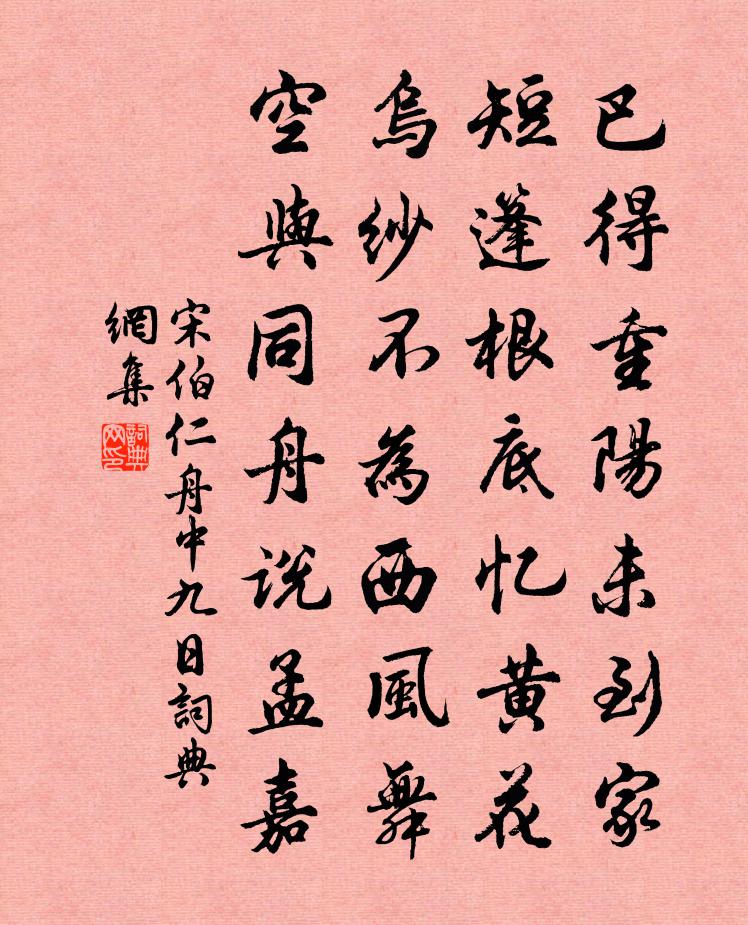 已得重陽未到家
短蓬根底忆黄花
烏紗不為西風舞
空與同舟说孟嘉
宋伯仁舟中九日詞典
網集
詞典
网印